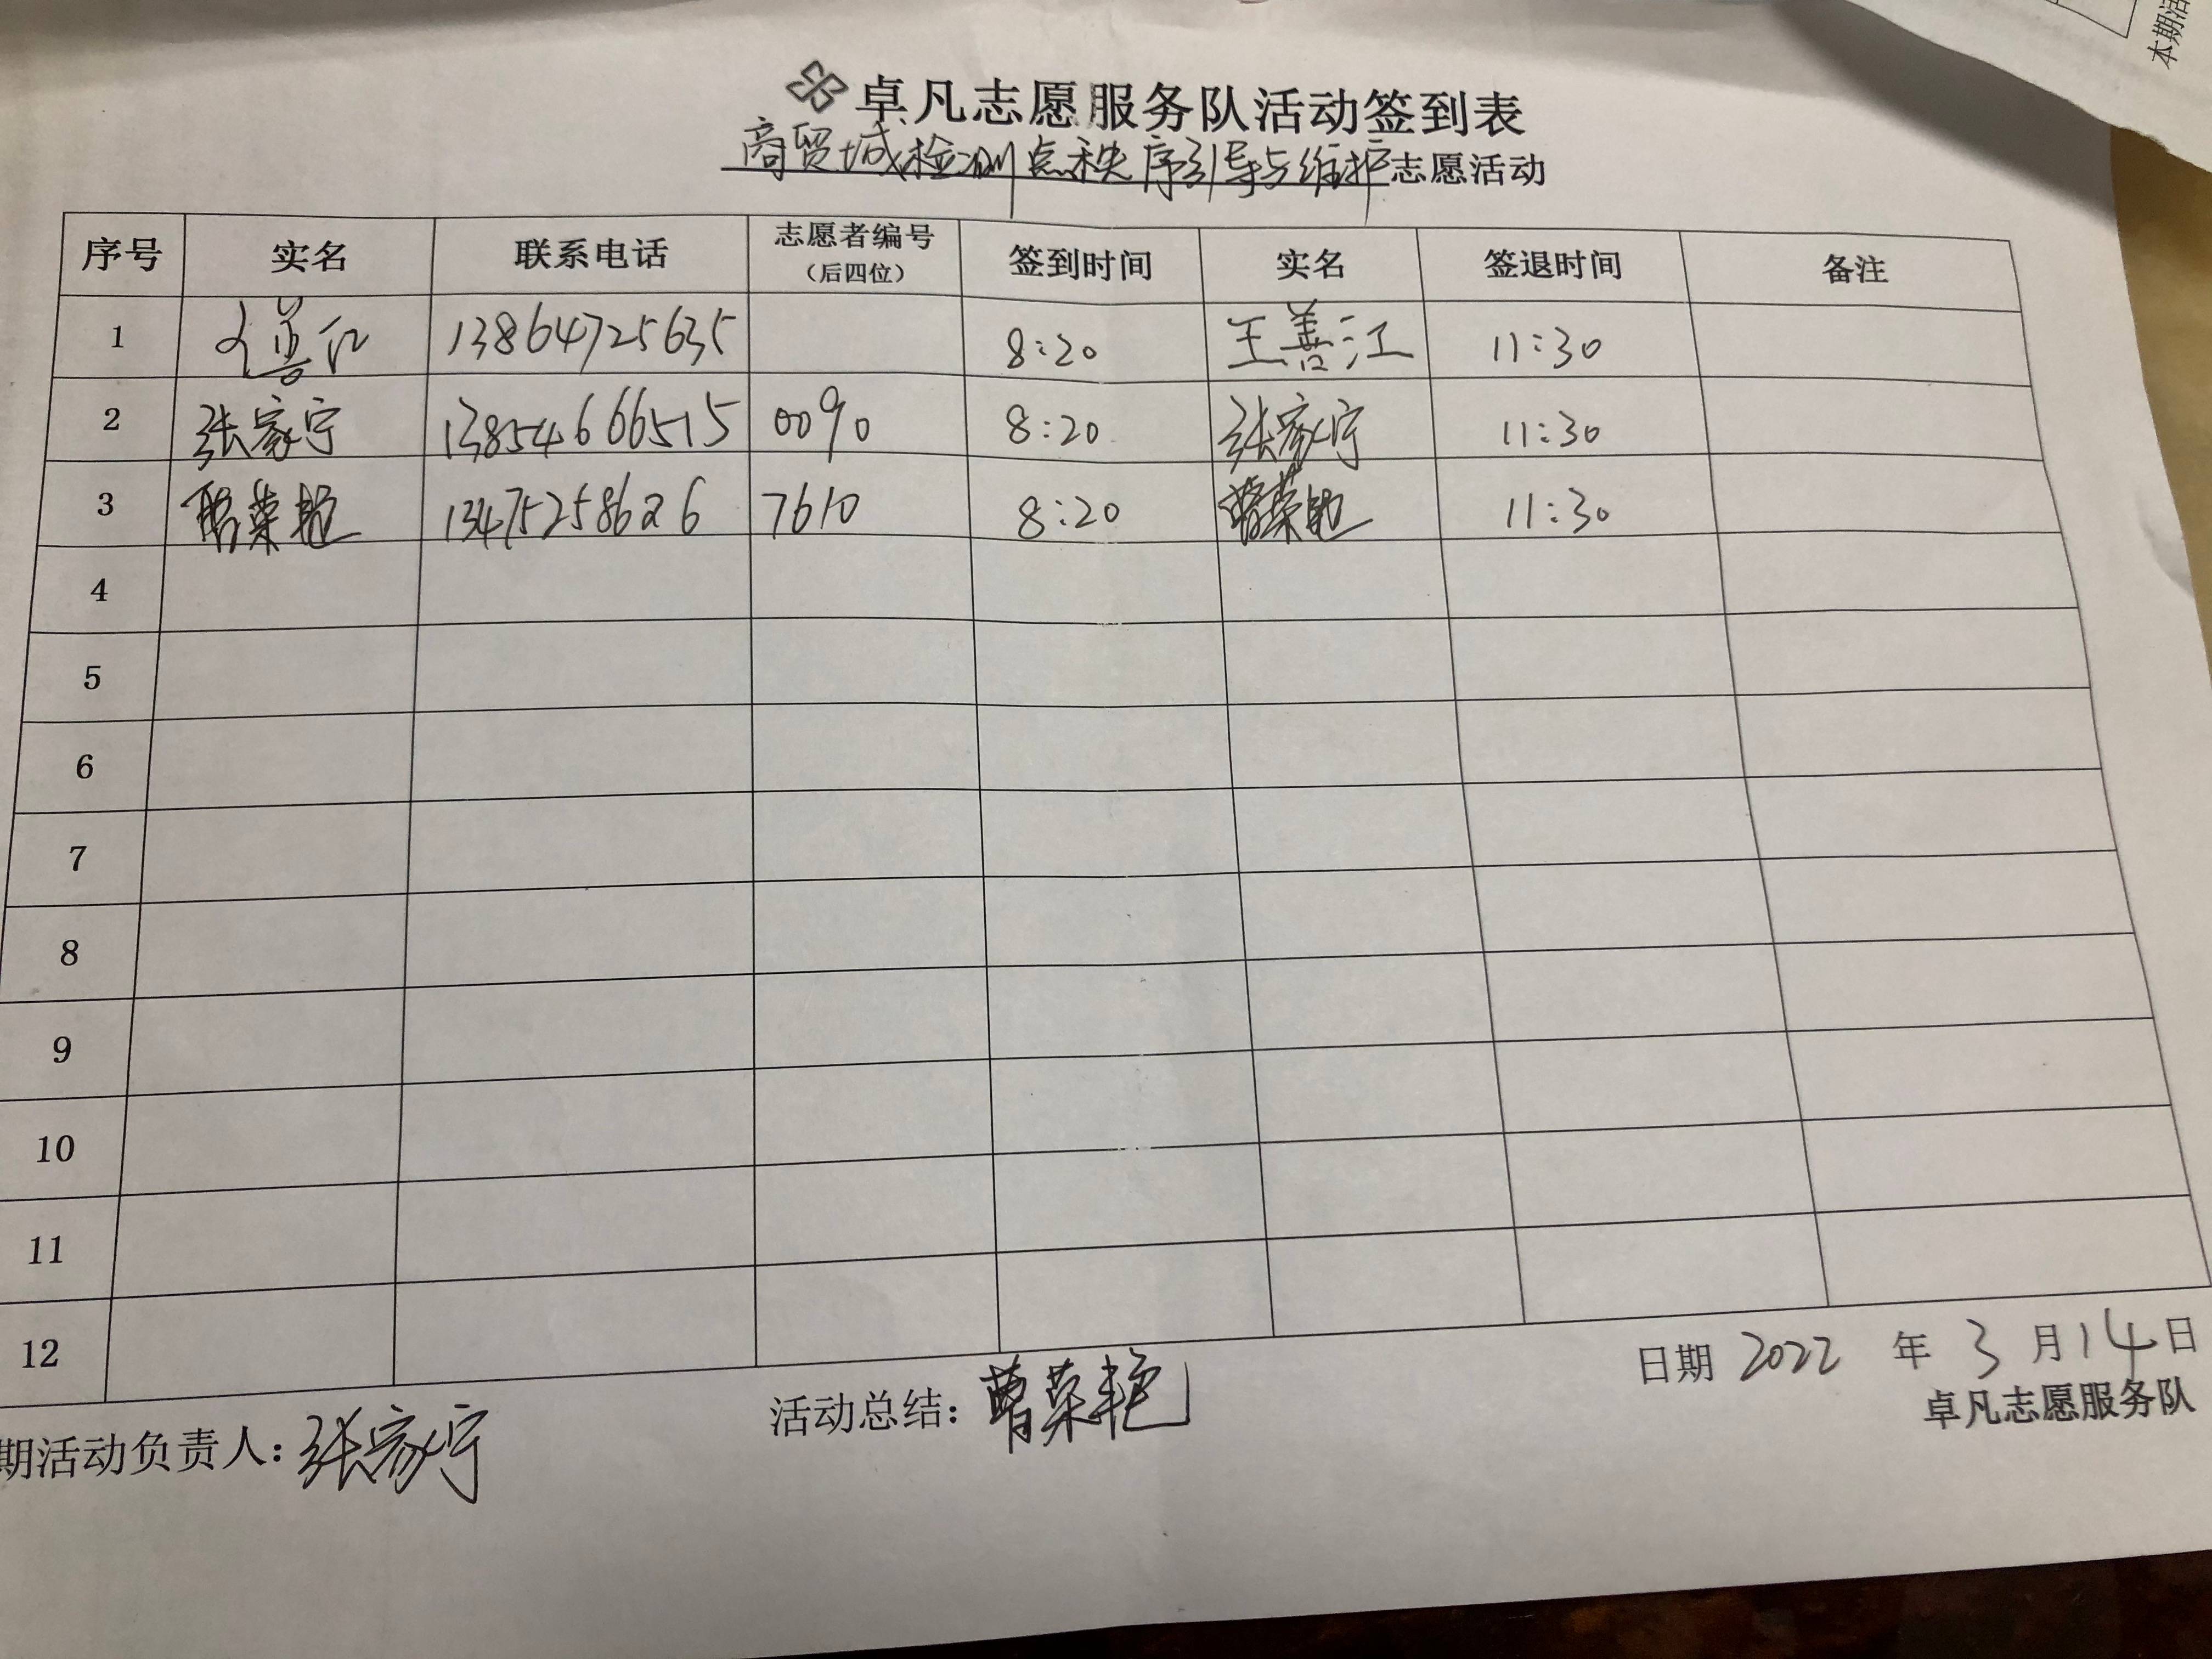 本期活
卓凡志愿服务队活动签到表
商贸城检测点秩序引导与维护志愿活动
序号 实名 联系电话 志愿者编号（后四位） 签到时间 实名 签退时间 备注
1 王善江 13864725635 8:20 王善江 11:30
2 张家宁 13854666515 0090 8:20 张家宁 11:30
3 曹荣艳 13475258626 7610 8:20 曹荣艳 11:30
4
5
6
7
8
9
10
11
12
日期 2022 年 3 月 14 日
期活动负责人：张家宁 活动总结：曹荣艳
卓凡志愿服务队